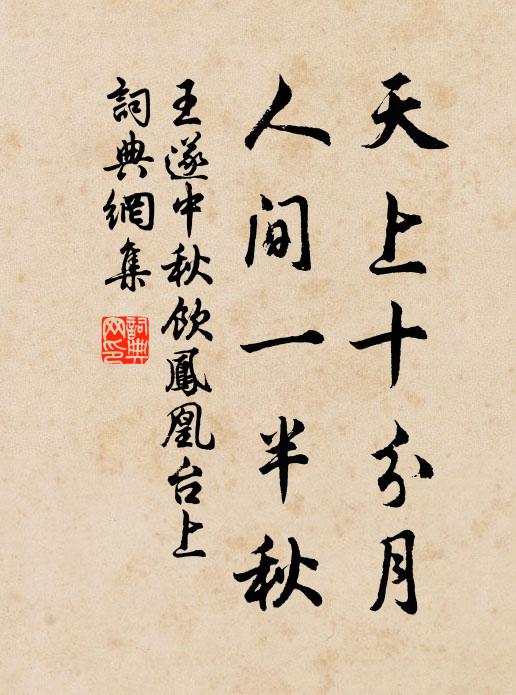 天上十分月
人間一半秋
王遂中秋飲鳳凰台上
詞典網集
詞典網印